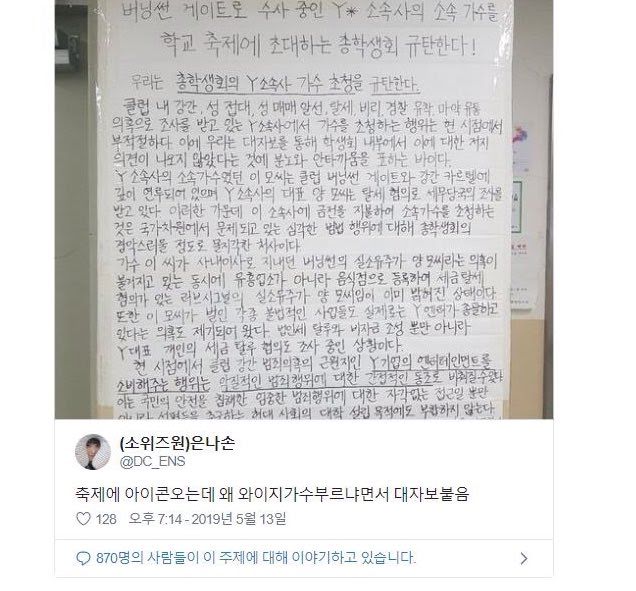 버닝썬 게이트로 수사 중인 Y* 소속사의 소속 가수를
학교 축제에 초대하는 총학생회 규탄한다!
우리는 총학생회의 Y소속사 가수 초청을 규탄한다.
클럽 내 강간, 성 접대, 성매매 알선, 탈세, 비리, 경찰 유착, 마약 유통
의혹으로 조사를 받고 있는 Y소속사에서 가수를 초청하는 행위는 현 시점에서
부적절하다. 이에 우리는 대자보를 통해 학생회 내부에서 이에 대한 저지
의견이 나오지 않았다는 것에 분노와 안타까움을 표하는 바이다.
Y소속사의 소속가수였던 이 모씨는 클럽 버닝썬 게이트와 강간 카르텔에
깊이 연루되어 있으며 Y소속사의 대표 양 모씨는 탈세 혐의로 세무당국의 조사를
받고 있다. 이러한 가운데 이 소속사에 금전을 지불하여 소속가수를 초청하는
것은 국가차원에서 문제되고 있는 심각한 범법 행위에 대해 총학생회의
경악스러울 정도로 몰지각한 처사이다.
가수 이 씨가 사내이사로 지내던 버닝썬의 실소유주가 양 모씨라는 의혹이
불거지고 있는 동시에 유흥업소가 아니라 음식점으로 등록하여 세금탈세
혐의가 있는 러브시그널의 실소유주가 양 모씨임이 이미 밝혀진 상태이다.
또한 이 모씨가 벌인 각종 불법적인 사업들도 실제로는 Y엔터가 총괄하고
있다는 의혹도 제기되어 왔다. 법인세 탈루와 비자금 조성 뿐만 아니라
Y대표 개인의 세금 탈루 혐의도 조사 중인 상황이다.
현 시점에서 클럽 강간 범죄의혹의 근원지인 Y기업의 엔터테인먼트를
소비해주는 행위는 악질적인 범죄행위에 대한 간접적인 동조로 비춰질수있다
이는 국민의 안전을 침해한 엄중한 범죄행위에 대한 자각없는 접근일 뿐만
아니라 현대 사회의 대학 설립 목적에도 부합하지 않는다
(소위즈원)은나손
@DC_ENS
축제에 아이콘오는데 왜 와이지가수부르냐면서 대자보붙음
128 오후 7:14 - 2019년 5월 13일
870명의 사람들이 이 주제에 대해 이야기하고 있습니다.